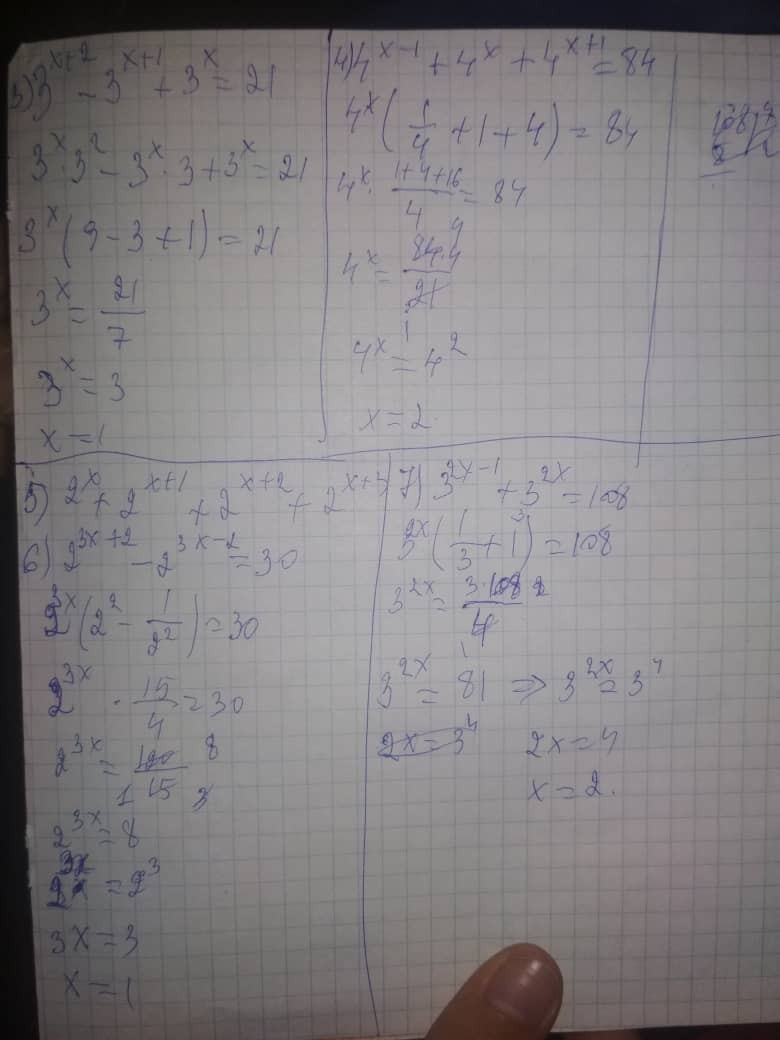 3) 3^{x+2} - 3^{x+1} + 3^x = 21
3^x · 3^2 - 3^x · 3 + 3^x = 21
3^x (9 - 3 + 1) = 21
3^x = 21/7
3^x = 3
x = 1
4) 4^{x-1} + 4^x + 4^{x+1} = 84
4^x (1/4 + 1 + 4) = 84
4^x · (1+4+16)/4 = 84
4^x = 84·4/21
4^x = 4^2
x = 2
5) 2^x + 2^{x+1} + 2^{x+2} + 2^{x+3}
6) 2^{3x+2} - 2^{3x-2} = 30
2^{3x} (2^2 - 1/2^2) = 30
2^{3x} · 15/4 = 30
2^{3x} = 120/15
2^{3x} = 8
2^{3x} = 2^3
3x = 3
x = 1
7) 3^{2x-1} + 3^{2x} = 108
3^{2x} (1/3 + 1) = 108
3^{2x} = 3·108/4
3^{2x} = 81 => 3^{2x} = 3^4
2x = 3^4
2x = 4
x = 2.